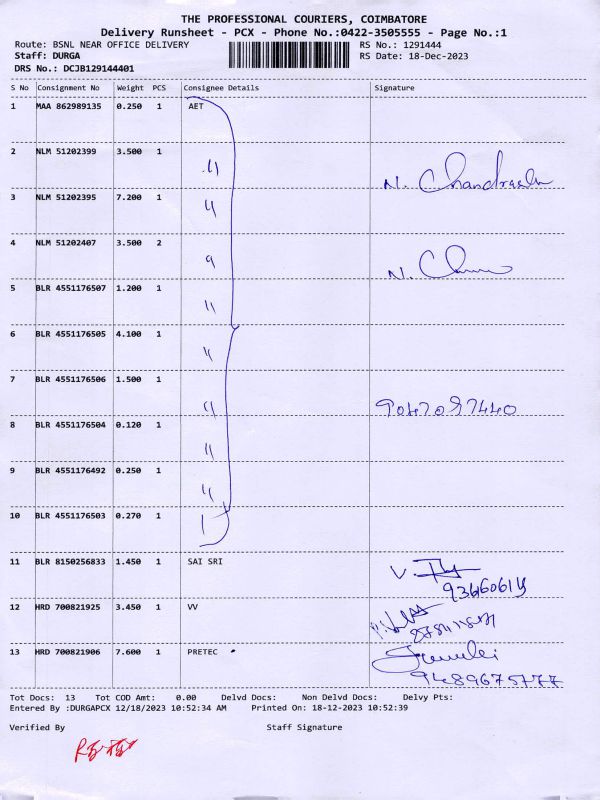 THE PROFESSIONAL COURIERS, COIMBATORE
Delivery Runsheet - PCX - Phone No.:0422-3505555 - Page No.:1
Route: BSNL NEAR OFFICE DELIVERY RS No.: 1291444
Staff: DURGA RS Date: 18-Dec-2023
DRS No.: DCJB129144401
S No Consignment No Weight PCS Consignee Details Signature
1 MAA 862989135 0.250 1 AET
2 NLM 51202399 3.500 1 〃 N. Chandrasekar
3 NLM 51202395 7.200 1 〃
4 NLM 51202407 3.500 2 〃 N. Chan
5 BLR 4551176507 1.200 1 〃
6 BLR 4551176505 4.100 1 〃
7 BLR 4551176506 1.500 1 〃 9047097440
8 BLR 4551176504 0.120 1 〃
9 BLR 4551176492 0.250 1 〃
10 BLR 4551176503 0.270 1
11 BLR 8150256833 1.450 1 SAI SRI
12 HRD 700821925 3.450 1 VV
13 HRD 700821906 7.600 1 PRETEC
9489675777
Tot Docs: 13 Tot COD Amt: 0.00 Delvd Docs: Non Delvd Docs: Delvy Pts:
Entered By :DURGAPCX 12/18/2023 10:52:34 AM Printed On: 18-12-2023 10:52:39
Verified By Staff Signature